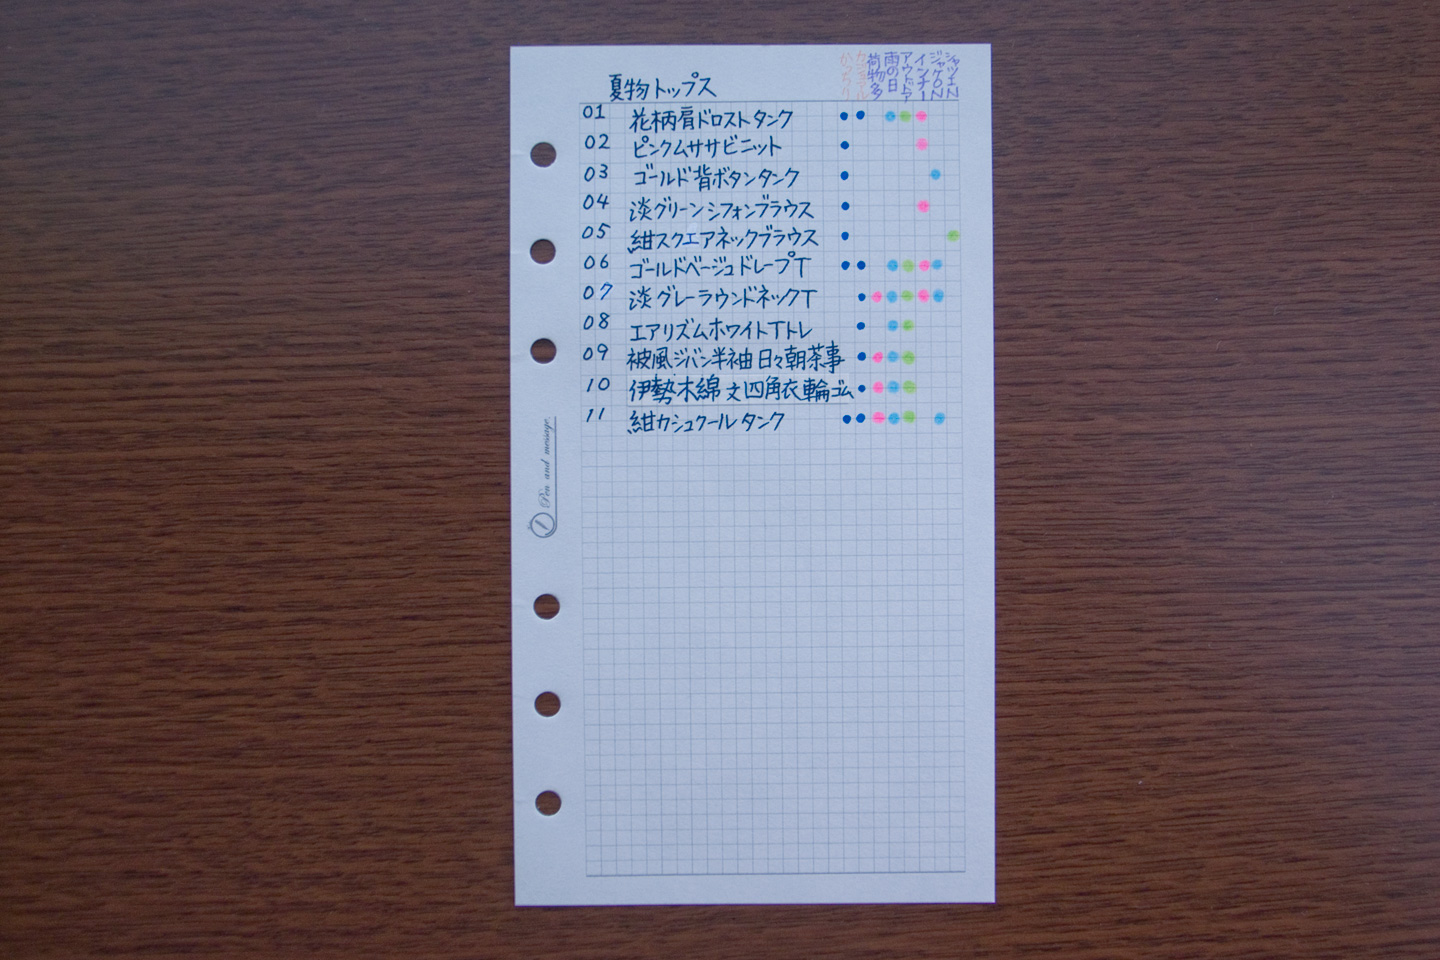 夏物トップス
かっちり
カジュアル
荷物多
雨の日
アウトドア
インナー
ジャケON
シャツIN
01 花柄肩ドロストタンク
02 ピンクムササビニット
03 ゴールド背ボタンタンク
04 淡グリーンシフォンブラウス
05 紺スクエアネックブラウス
06 ゴールドベージュドレープT
07 淡グレーラウンドネックT
08 エアリズムホワイトTトレ
09 被風ジバン半袖 日々朝茶事
10 伊勢木綿 文四角衣 輪ゴム
11 紺カシュクールタンク
Pen and message.